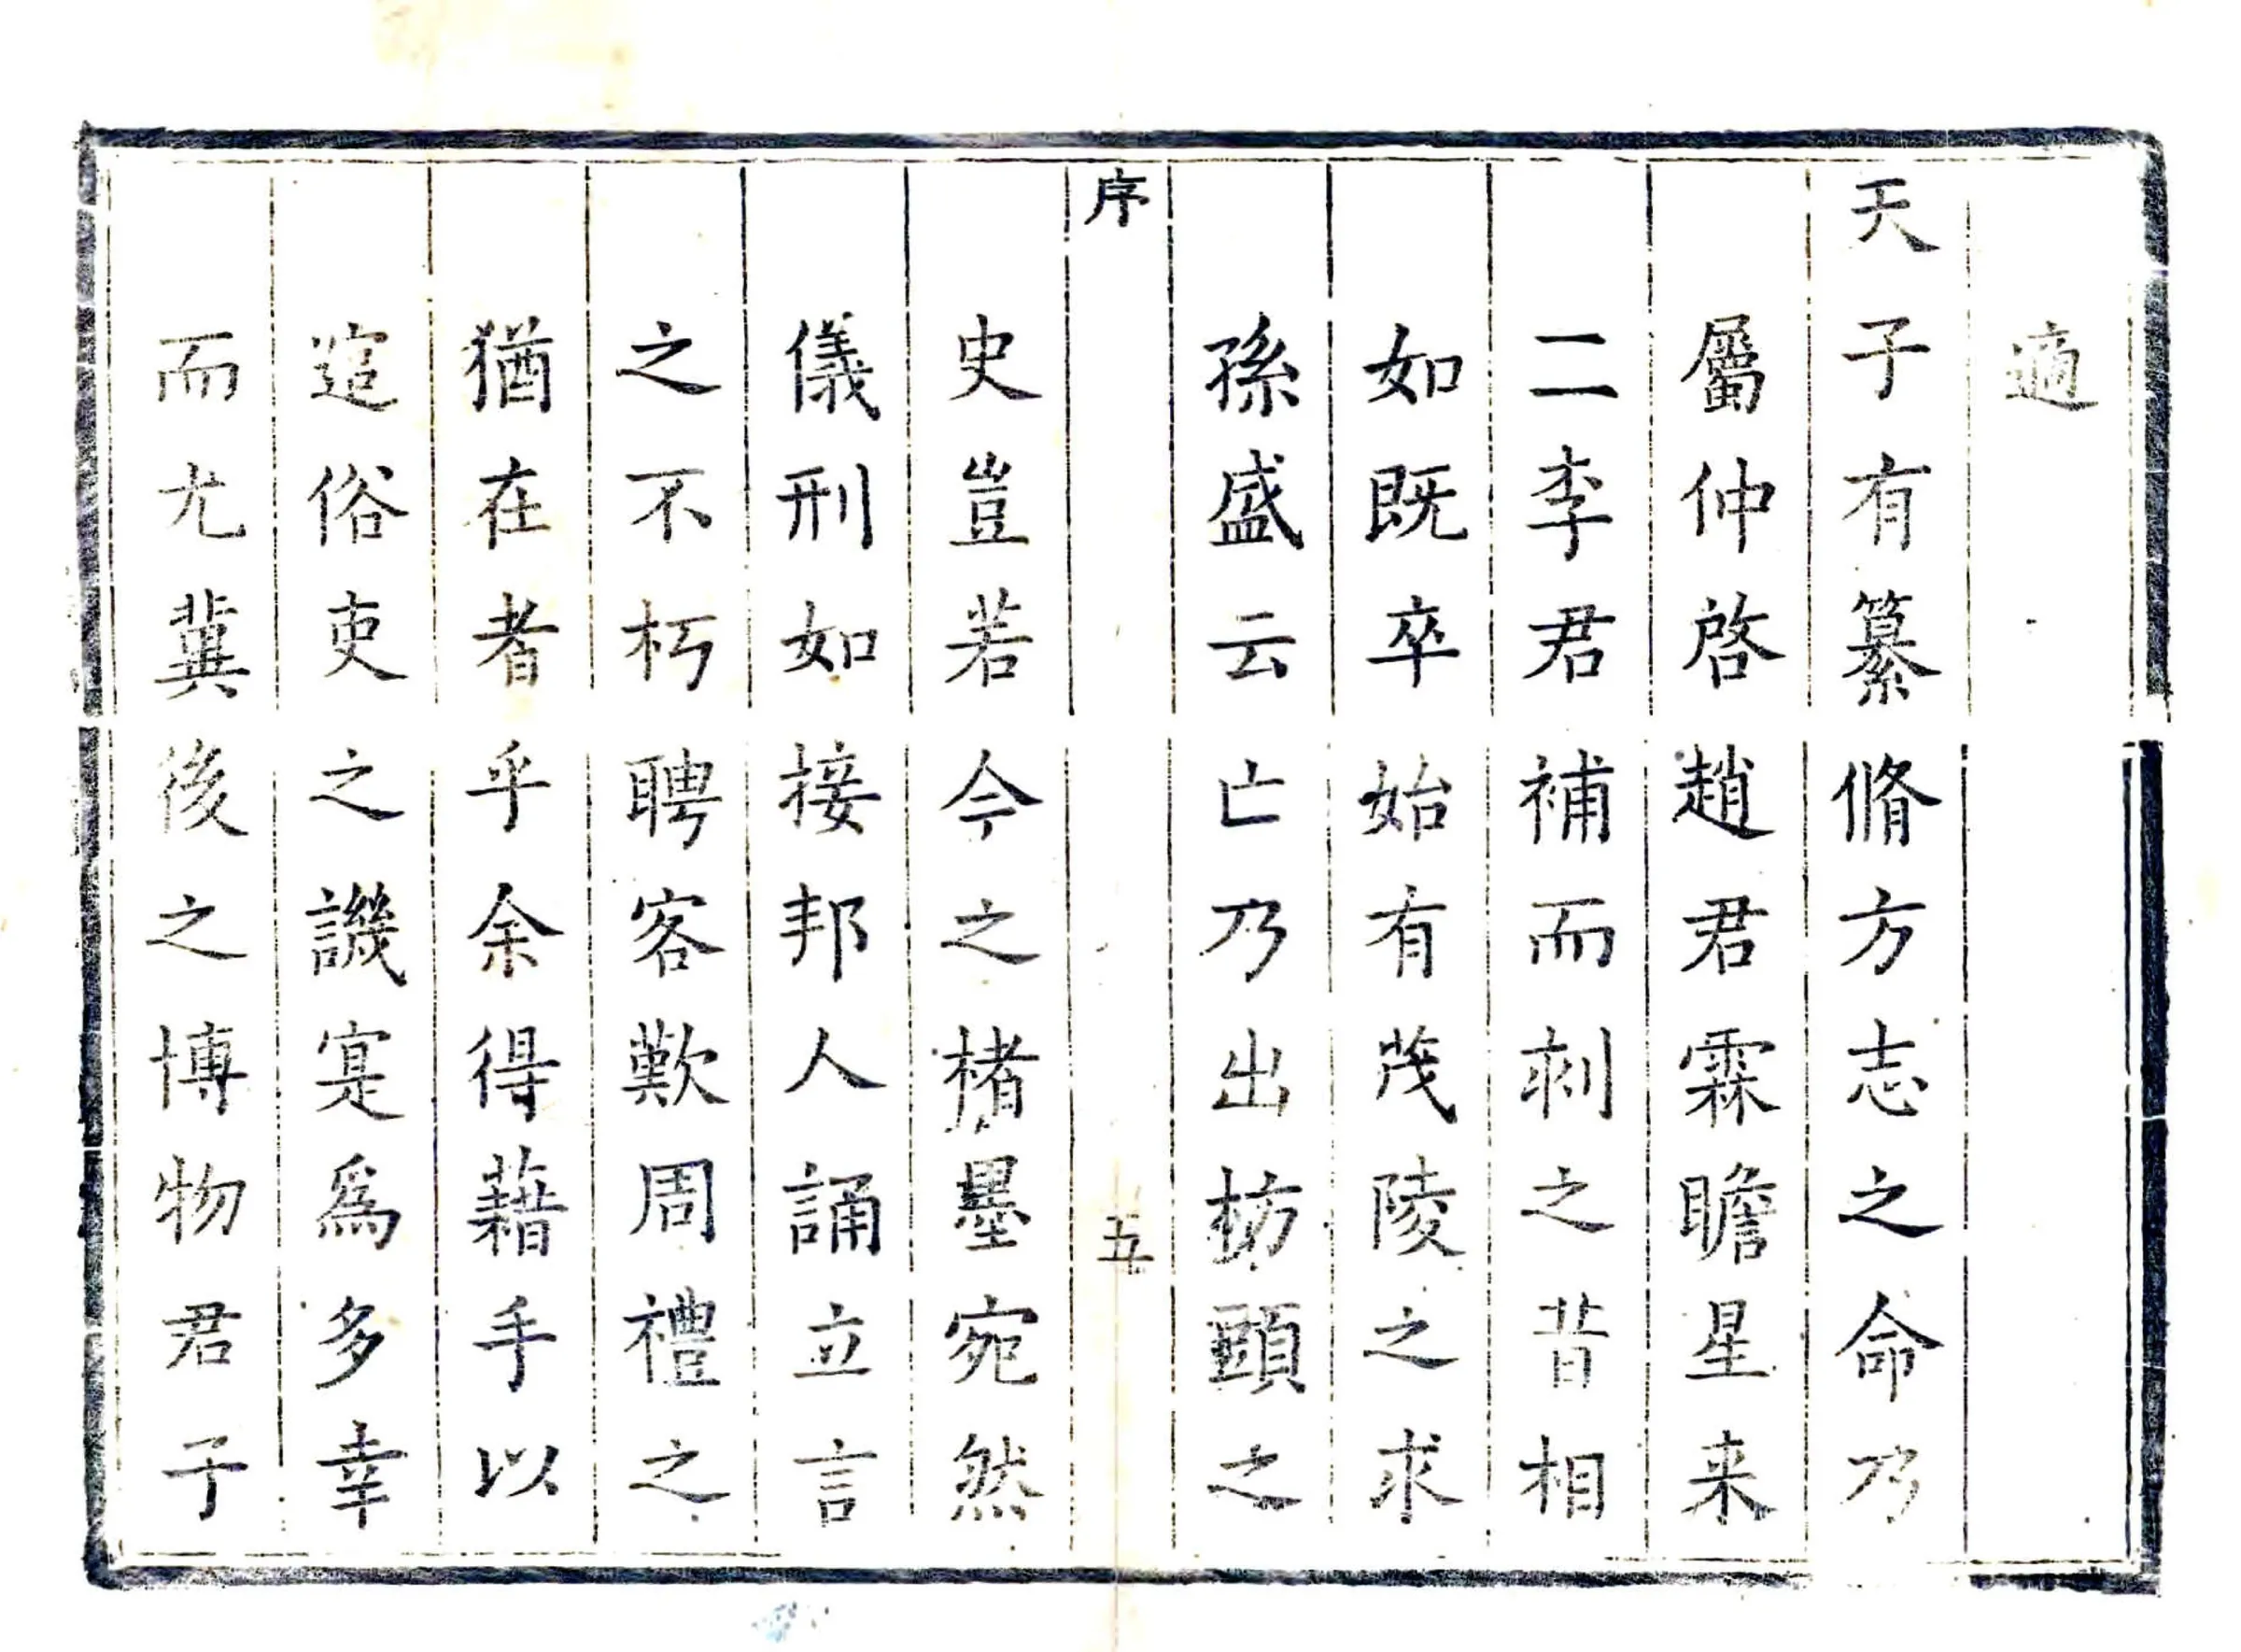 適
天子有纂脩方志之命乃
屬仲啓趙君霖瞻星来
二李君補而刺之昔相
如既卒始有茂陵之求
孫盛云亡乃出枋頭之
序
五
史豈若今之楮墨宛然
儀刑如接邦人誦立言
之不朽聘客歎周禮之
猶在者乎余得藉手以
逭俗吏之譏寔為多幸
而尤冀後之博物君子